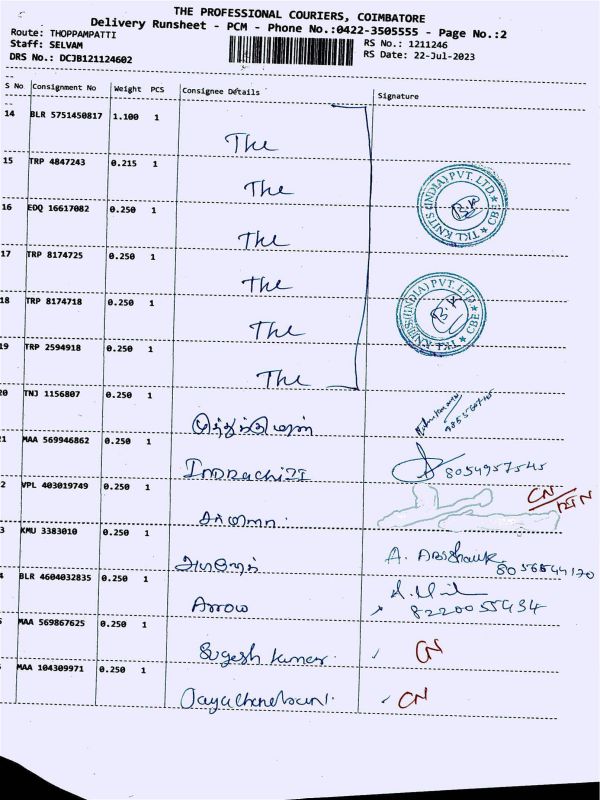 THE PROFESSIONAL COURIERS, COIMBATORE
Delivery Runsheet - PCM - Phone No.:0422-3505555 - Page No.:2
Route: THOPPAMPATTI
Staff: SELVAM
RS No.: 1211246
DRS No.: DCJB121124602
RS Date: 22-Jul-2023
S No Consignment No Weight PCS Consignee Details Signature
14 BLR 5751450817 1.100 1
The
15 TRP 4847243 0.215 1
The
16 EDQ 16617082 0.250 1
The
17 TRP 8174725 0.250 1
The
18 TRP 8174718 0.250 1
The
19 TRP 2594918 0.250 1
The
20 TNJ 1156807 0.250 1
21 MAA 569946862 0.250 1
8054957545
2 VPL 403019749 0.250 1
CN
3 KMU 3383010 0.250 1
A.
4 BLR 4604032835 0.250 1
Arrow 8220055434
MAA 569867625 0.250 1
Sugesh Kumar. CN
MAA 104309971 0.250 1
CN